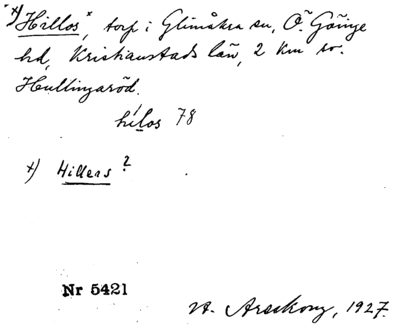 x) Hillos x, torp i Glimåkra sn, Ö. Göinge
hd, Kristianstads län, 2 km sv.
Hullingaröd.
hilos 78
x) Hillens?
Nr 5421
A. Areskoug, 1927.